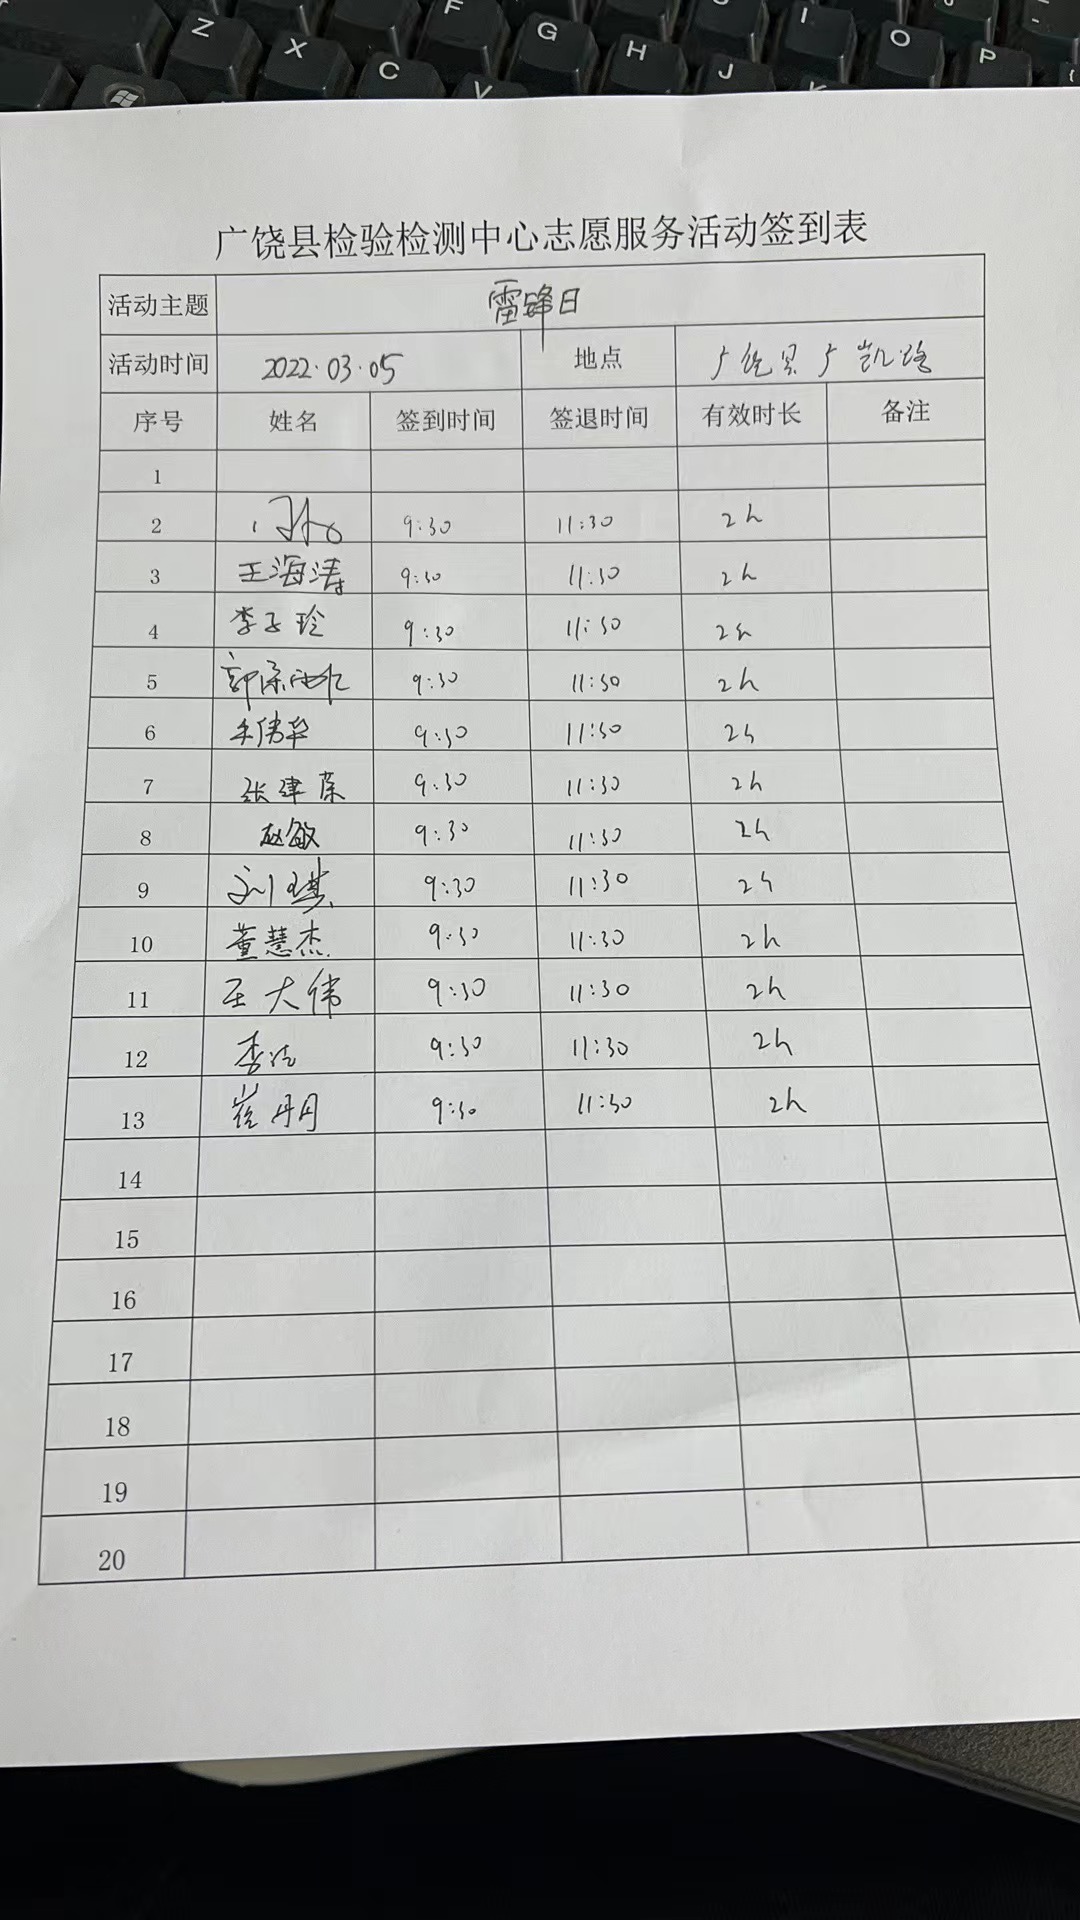 Z X C F G H J I O P
广饶县检验检测中心志愿服务活动签到表
活动主题 雷锋日
活动时间 2022.03.05 地点 广饶县广凯路
序号 姓名 签到时间 签退时间 有效时长 备注
1
2 9:30 11:30 2h
3 王海涛 9:30 11:30 2h
4 李子玲 9:30 11:30 2h
5 9:30 11:30 2h
6 9:30 11:30 2h
7 张建荣 9:30 11:30 2h
8 赵敏 9:30 11:30 2h
9 刘琪 9:30 11:30 2h
10 董慧杰 9:30 11:30 2h
11 王大伟 9:30 11:30 2h
12 李 9:30 11:30 2h
13 崔丹丹 9:30 11:30 2h
14
15
16
17
18
19
20